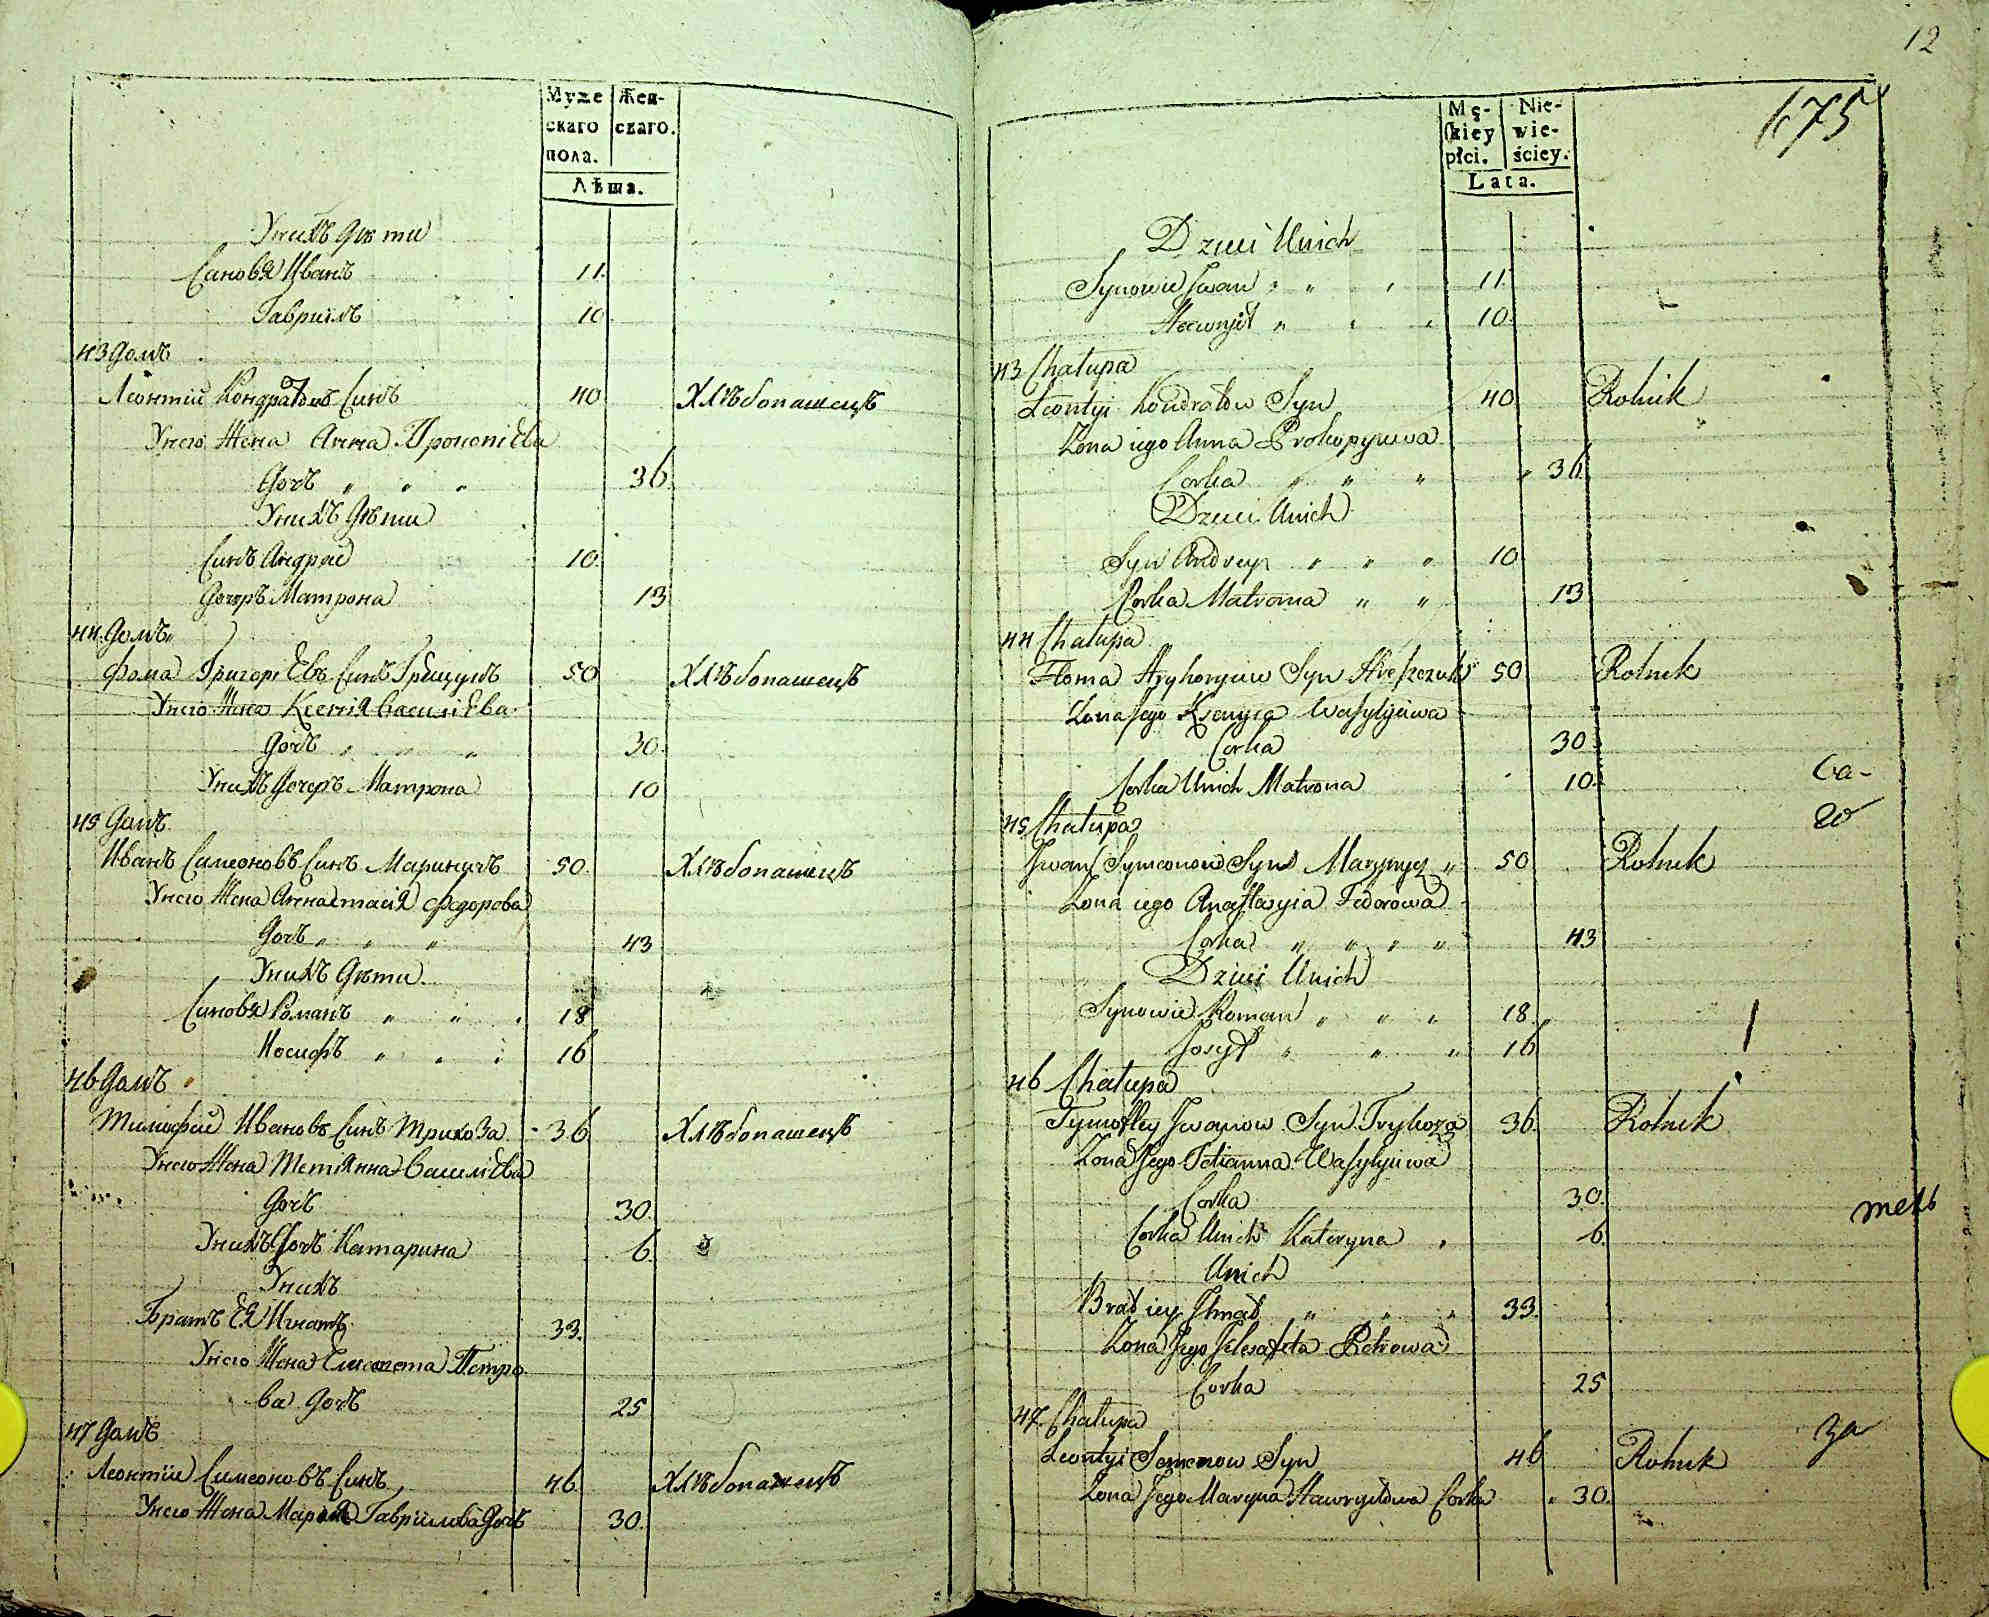 Муже Жен-
скаго скаго.
пола.
Лѣта.
Унихъ Дѣти
Сановя Иванъ 11.
Гаврилъ 10
43 Домъ
Леонтий Кондратовъ Синъ 40 Хлѣбопашецъ
Унего Жена Анна Прокопіева
Дочъ " " " 36.
Унихъ Дѣти
Синъ Андрей 10.
Дочеръ Матрона 13
44 Домъ
Фома Григоріевъ Синъ Грещукъ 50 Хлѣбопашецъ
Унего Жена Ксенія Василіева
Дочъ " " " 30.
Унихъ Дочеръ Матрона 10
45 Домъ
Иванъ Симеоновъ Синъ Мариничъ 50. Хлѣбопашецъ
Унего Жена Аннастасія Федорова
Дочъ " " " 43
Унихъ Дѣти
Синовя Романъ " " " 18
Иосифъ " " " 16
46 Домъ
Тимофей Ивановъ Синъ Трихоза 36 Хлѣбопашецъ
Унего Жена Тетіянна Василіева
Дочъ 30.
Унихъ Дочъ Катарина 6.
Унихъ
Братъ Ея Игнатъ 33.
Унего Жена Елисавета Петро
ва Дочъ 25
47 Домъ
Леонтій Симеоновъ Синъ 46. Хлѣбопашецъ
Унего Жена Мария Гаврилова Дочъ 30.
12
175
Mę- Nie-
skiey wie-
płci. ściey.
Lata.
Dzieci Unich
Synowie Iwan " " " 11.
Hawrył " " " 10.
43 Chałupa
Leontyi Kondratow Syn 40 Rolnik
Żona iego Anna Prokopyiewa
Corka " " " 36
Dzieci Unich
Syn Andrey " " " 10
Corka Matrona " " 13
44 Chałupa
Foma Hryhoryiew Syn Hreszczuk 50 Rolnik
Żona Jego Ksenyia Wasylyiewa
Corka 30
Corka Unich Matrona 10. Са-
45 Chałupa
Iwan Symeonow Syn Marynycz " 50 Rolnik
Żona iego Anastasyia Fedorowa
Corka " " " " 43
Dzieci Unich
Synowie Roman " " " 18
Josyf " " " 16
46 Chałupa
Tymofey Iwanow Syn Trykoza 36. Rolnik
Żona Jego Tetianna Wasylyiewa
Corka 30. тель
Corka Unich Kateryna " 6.
Unich
Brat iey Ihnat " " " 33.
Żona Jego Jelesafeta Petrowa
Corka 25
47 Chałupa
Leontyi Semenow Syn 46 Rolnik за
Żona Jego Maryna Hawryłowa Corka " 30.